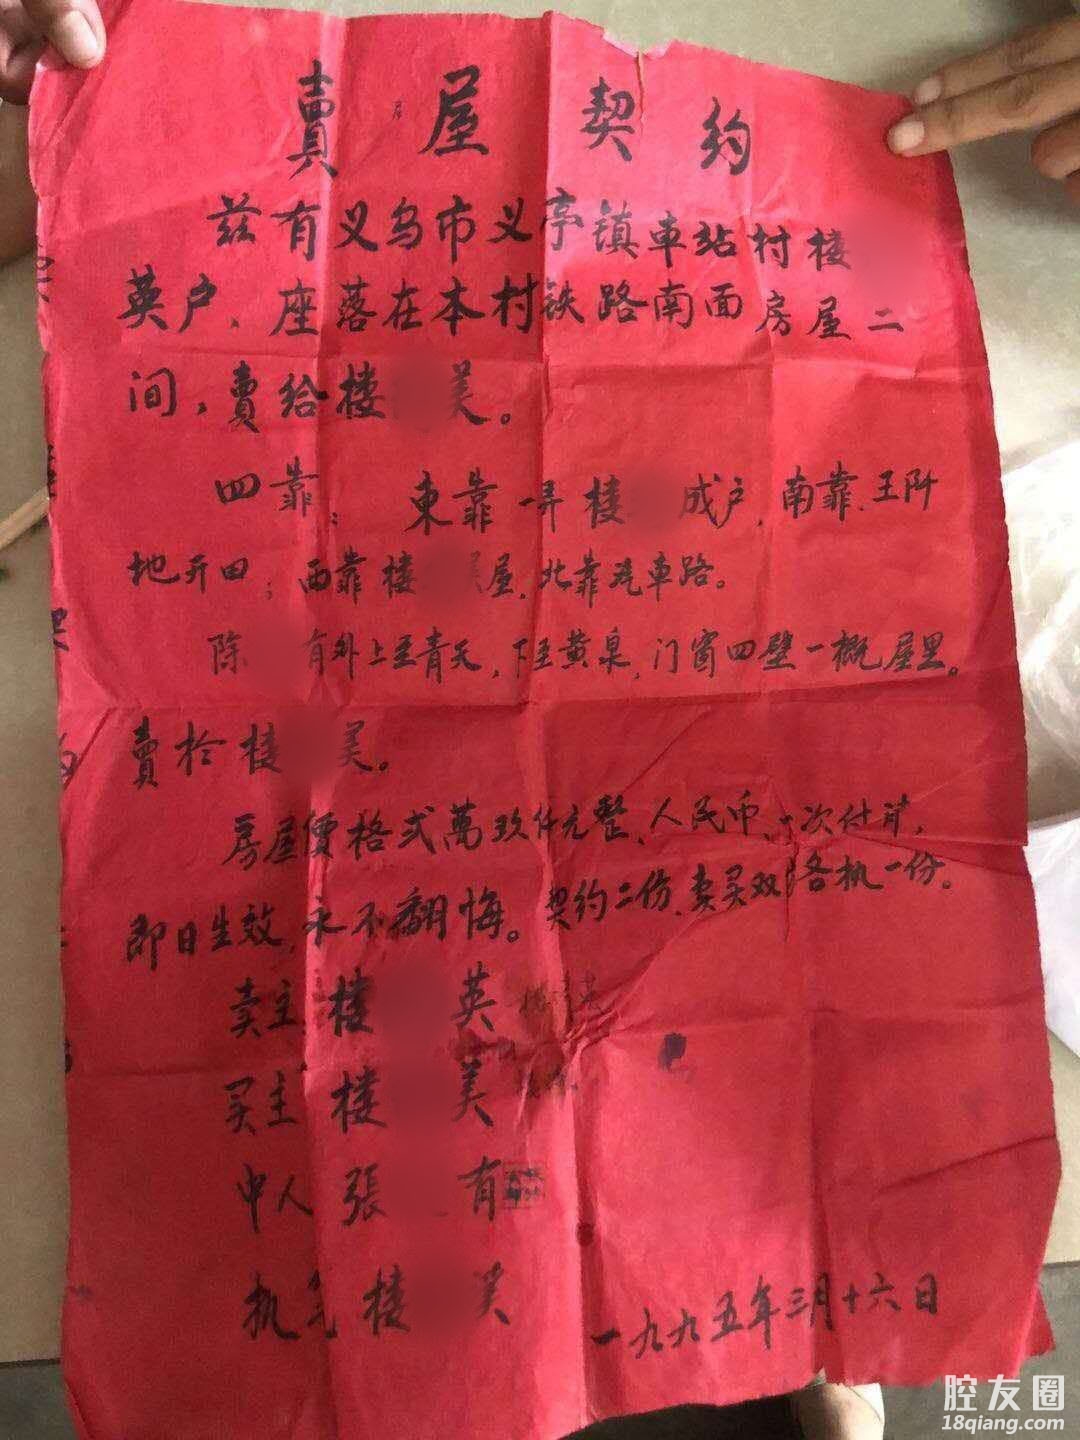 賣屋契约
兹有义乌市义亭镇車站村楼
英户、座落在本村铁路南面房屋二
间,賣给楼 美。
四靠: 東靠一弄楼 成户,南靠.王阡
地开田;西靠楼 屋,北靠汽車路。
除 有外上至青天,下至黄泉,门窗四壁一概屋里。
賣扵楼 美。
房屋價格弍萬玖仟元整、人民币、一次付清,
即日生效,永不翻悔。契约二份,卖买双 各执一份。
卖主 楼 英
买主 楼 美
中人 張 有
执笔 楼
一九九五年三月十六日
腔友圈
18qiang.com